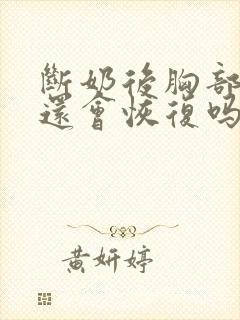 斷奶後胸部
還會恢復嗎
黃妍婷